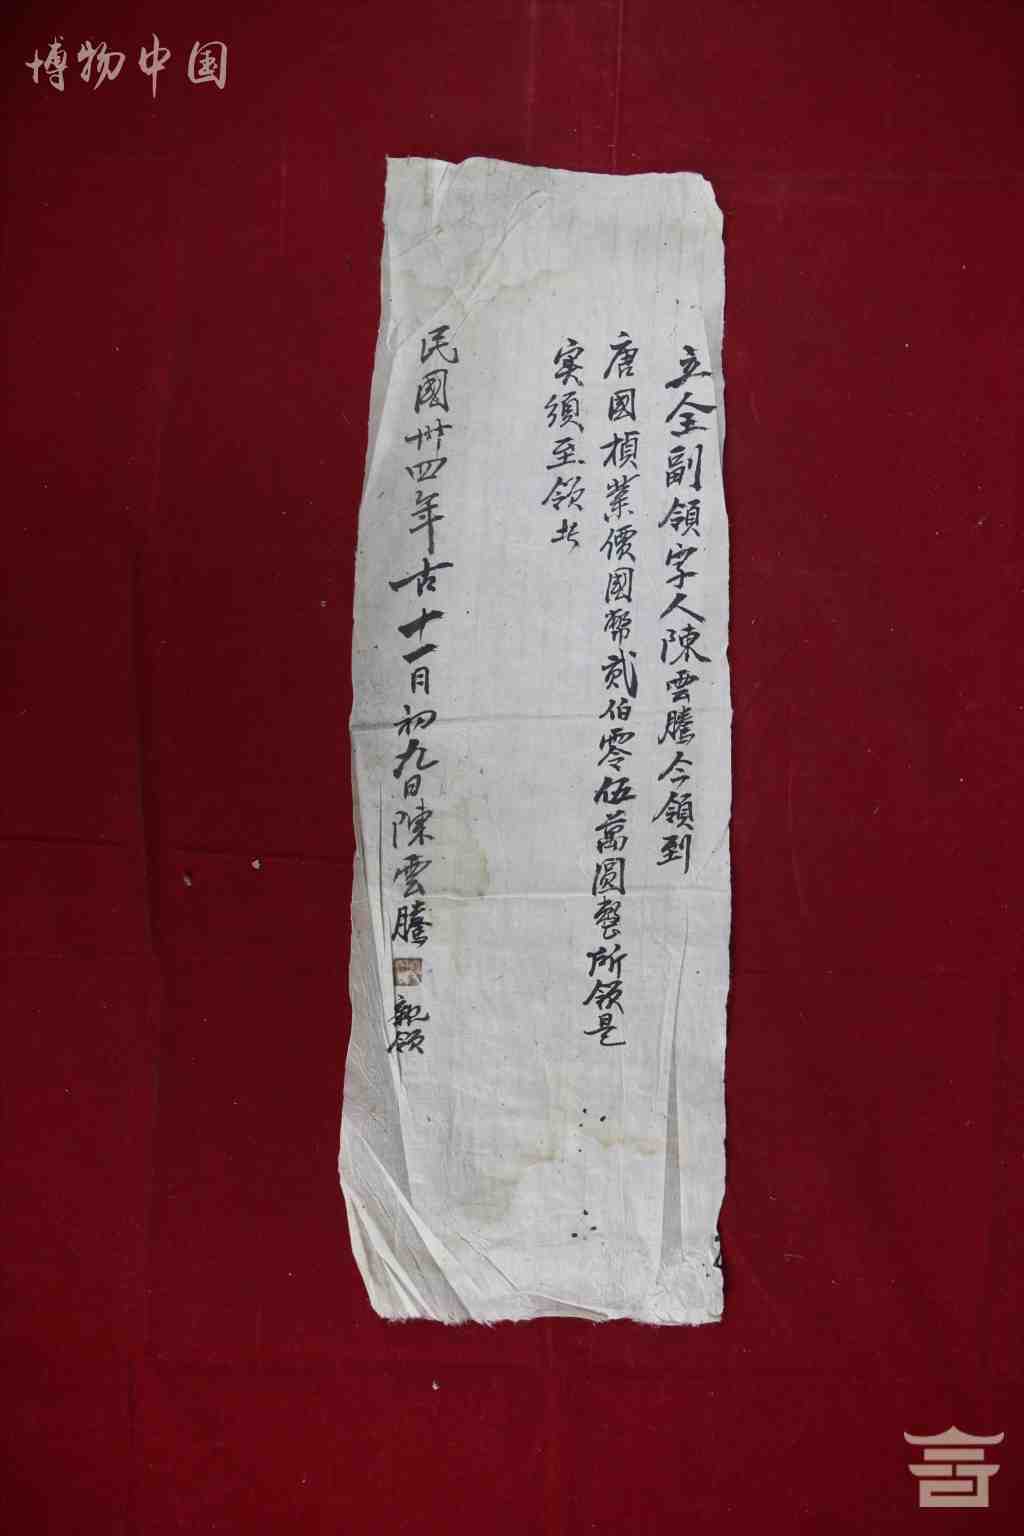 博物中国
立全副領字人陳雲騰今領到
唐國楨業價國幣贰伯零伍萬圓整所領是
实須至領者
民國卅四年古十一月初九日陳雲騰
親領